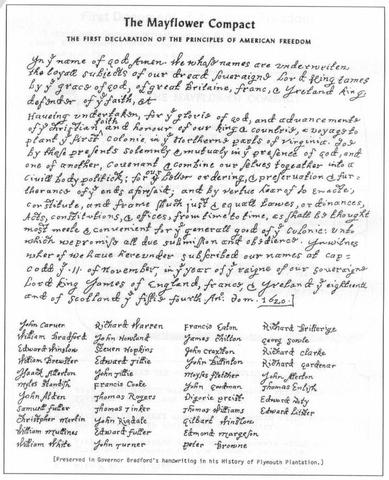 The Mayflower Compact
THE FIRST DECLARATION OF THE PRINCIPLES OF AMERICAN FREEDOM
In yͤ name of god Amen. We whose names are underwriten
the loyall subjects of our dread soveraigne Lord King James
by yͤ grace of god, of great Britaine, franc, & Ireland king
defender of yͤ faith, &c
Haveing undertaken, for yͤ glorie of god, and advancemente
of yͤ christian faith and honour of our king & countrie, a voyage to
plant yͤ first colonie in yͤ Northerne parts of Virginia. doe
by these presents solemnly & mutualy in yͤ presence of god, and
one of another, covenant & combine our selves togeather into a
civill body politick; for our better ordering, & preservation & fur=
therance of yͤ ends aforesaid; and by vertue hearof to enacte,
constitute, and frame shuch just & equall lawes, ordinances,
Acts, constitutions, & offices, from time to time, as shall be thought
most meete & convenient for yͤ generall good of yͤ colonie: unto
which we promise all due submission and obedience. In witnes
wher of we have hereunder subscribed our names at cap=
Codd yͤ .11. of November, in yͤ year of yͤ raigne of our soveraigne
Lord king James of England, franc, & Ireland yͤ eighteenth
and of scotland yͤ fiftie fourth. dom. 1620.
John Carver Richard Warren Francis Eaton Richard Britterige
William Bradford John Howland James Chilton Georg Soule
Edward Winslow Steven Hopkins John Craxton Richard Clarke
William Brewster Edward Tillie John Billinton Richard Gardenar
Isaack Alerton John Tillie Moyses Fletcher John Alerton
Myles Standish Francis Cooke John Goodman Thomas English
John Alden Thomas Rogers Digorie Preist Edward Doty
Samuell Fuller Thomas Tinker Thomas Williams Edward Leister
Christopher Martin John Rigdale Gilbart Winslow
William Mullines Edward Fuller Edmond Margeson
William White John Turner Peter Browne
[Preserved in Governor Bradford's Handwriting in his History of Plymouth Plantation.]